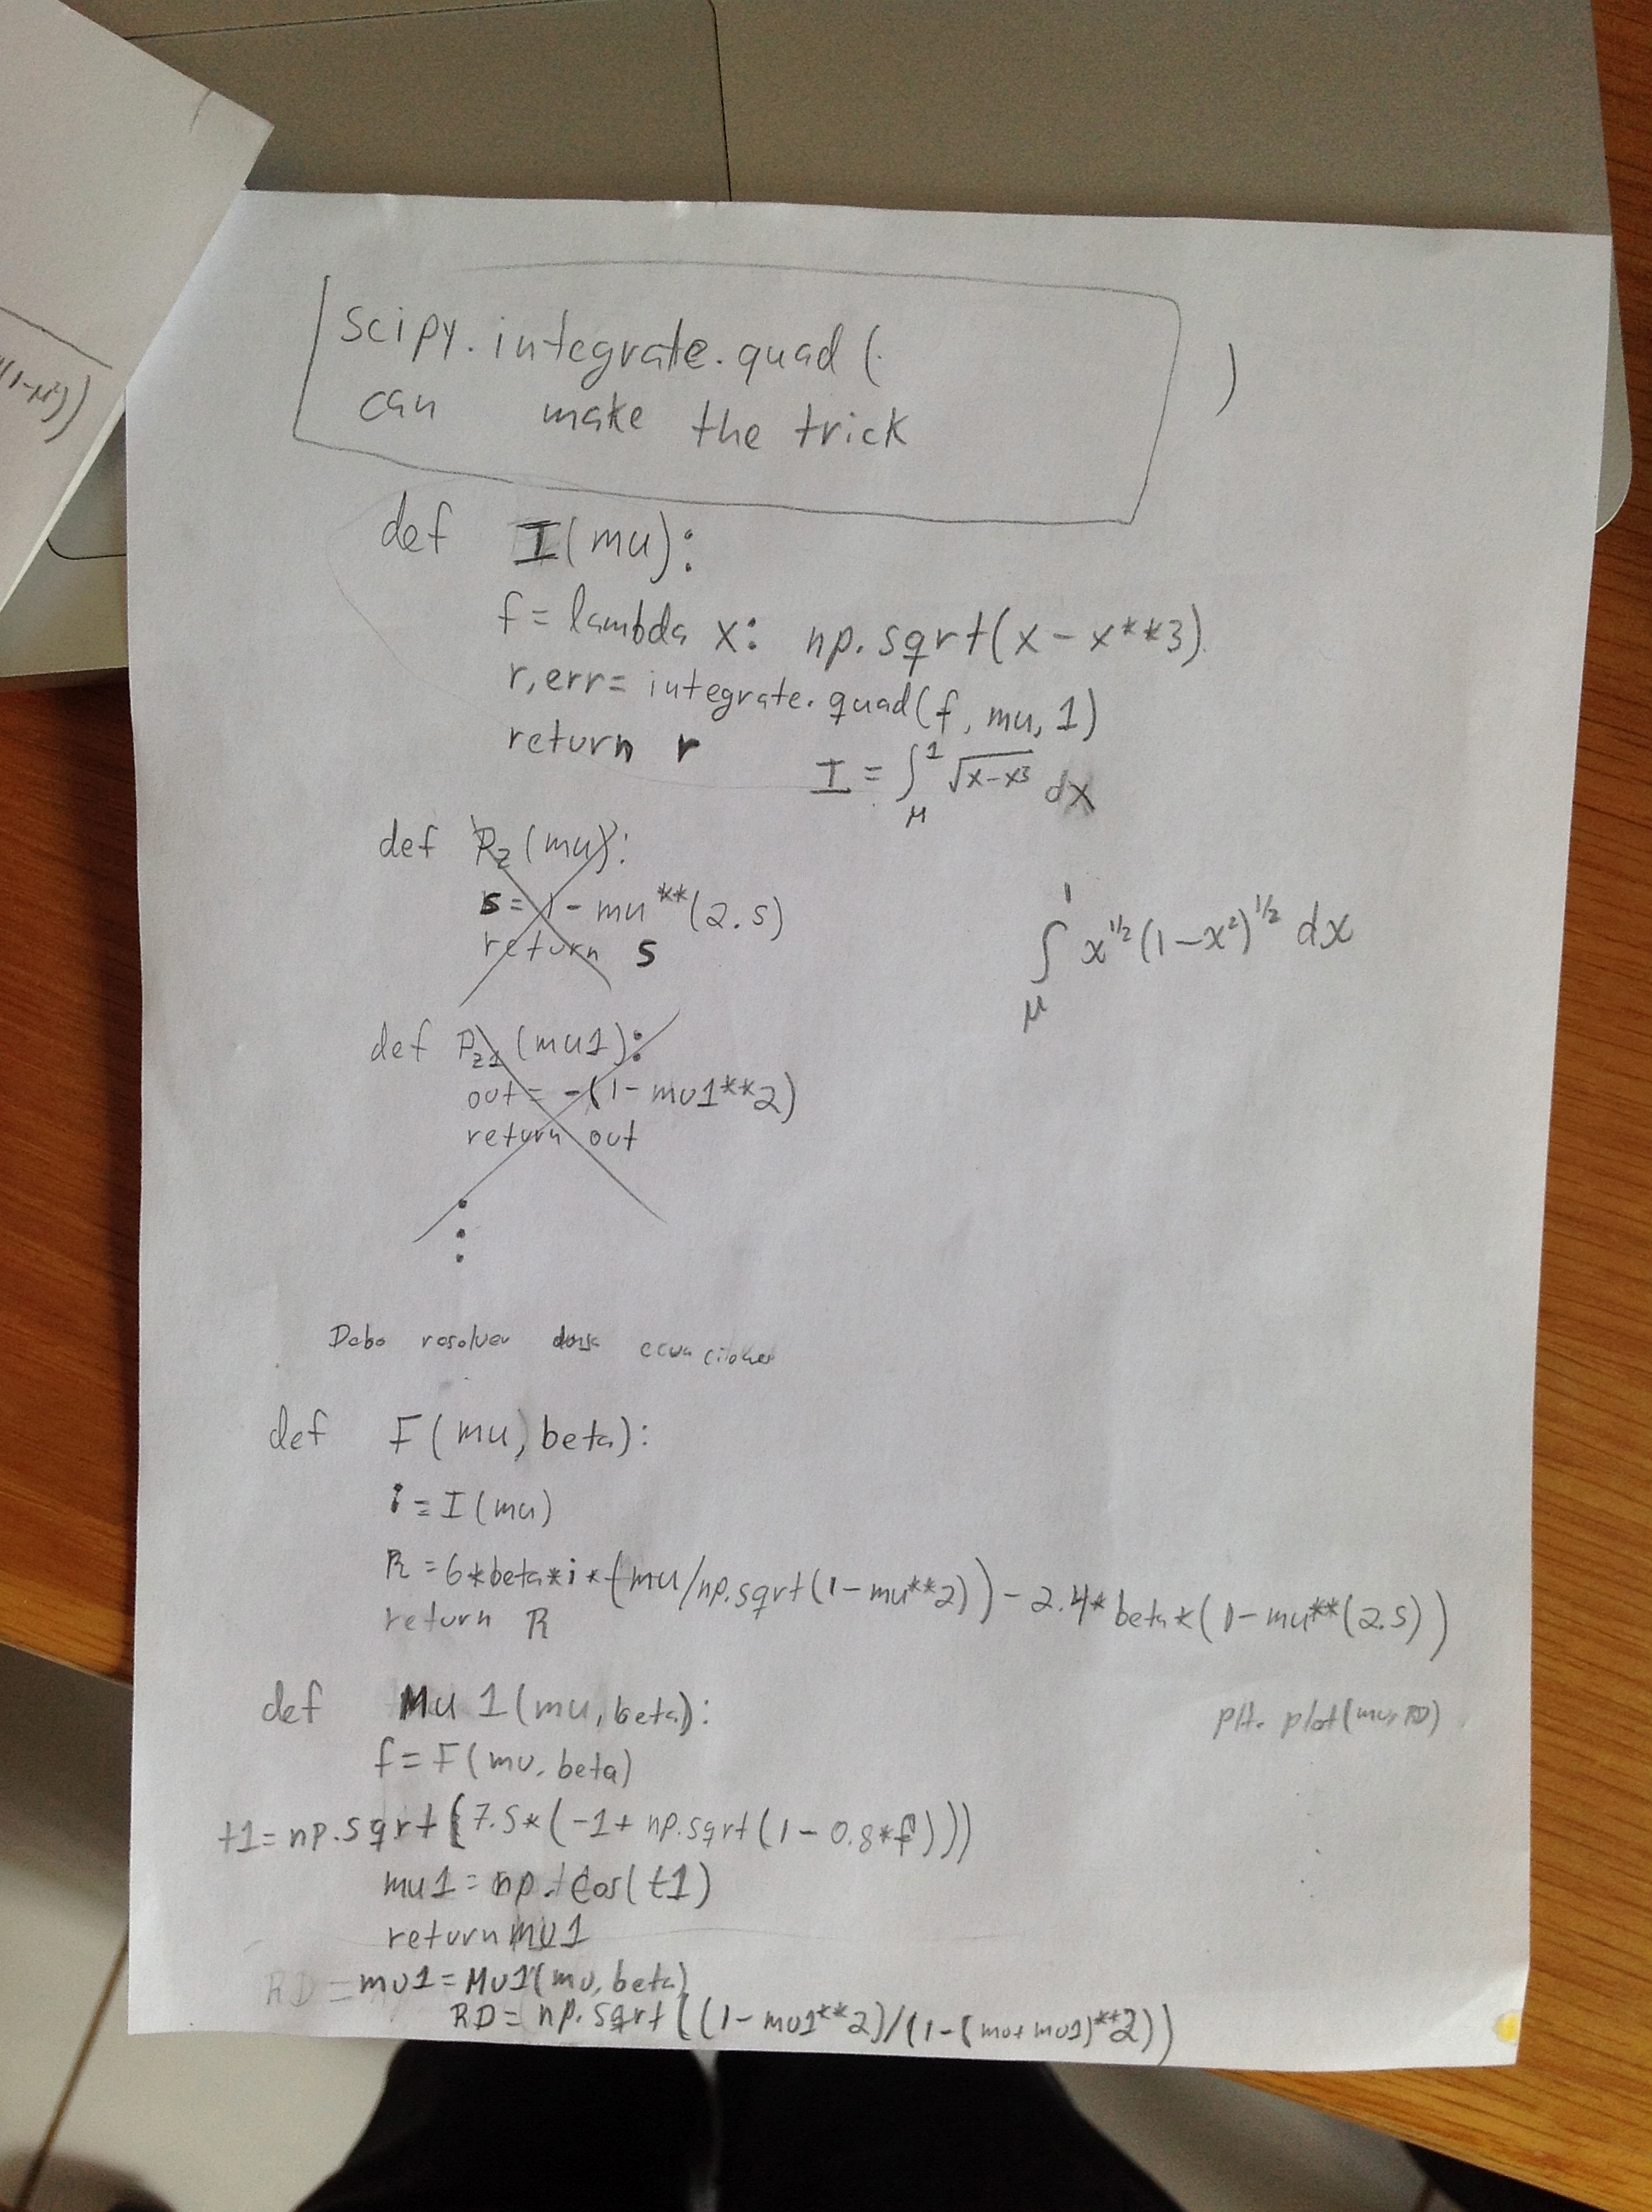 scipy.integrate.quad( )
can make the trick
def I(mu):
f = lambda x: np.sqrt(x - x**3)
r,err= integrate.quad(f, mu, 1)
return r
I = ∫_μ^1 √(x-x³) dx
def Rz(mu):
s = 1 - mu**(2.5)
return s
∫_μ^1 x^{1/2} (1-x²)^{1/2} dx
def Pz1(mu1):
out = -(1- mu1**2)
return out
Debo resolver ecuaciones
def F(mu, beta):
i = I(mu)
R = 6*beta*i*(mu/np.sqrt(1-mu**2)) - 2.4*beta*(1-mu**(2.5))
return R
def Mu1(mu, beta):
f = F(mu, beta)
t1 = np.sqrt(7.5*(-1+ np.sqrt(1- 0.8*f)))
mu1 = np.cos(t1)
return mu1
plt. plot(mu, RD)
RD = mu1 = Mu1(mu, beta)
RD = np.sqrt((1-mu1**2)/(1-(mu+mu1)**2))
(1-μ²))